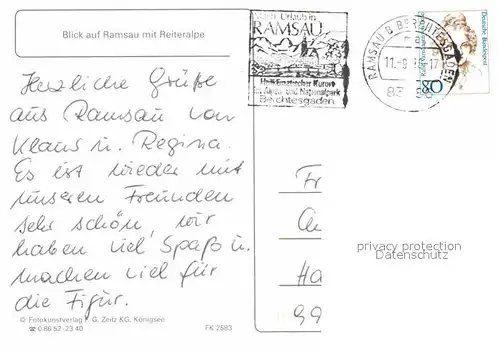 Blick auf Ramsau mit Reiteralpe
Mach' Urlaub in
RAMSAU
Heilklimatischer Kurort
im Alpen- und Nationalpark
Berchtesgaden
RAMSAU B BERCHTESGADEN
11.-9
17
83
80
Deutsche Bundespost
Herzliche Grüße
aus Ramsau von
Klaus u. Regina.
Es ist wieder mit
unseren Freunden
sehr schön, wir
haben viel Spaß u.
machen viel für
die Figur.
Fr
Ha
99
privacy protection
Datenschutz
© Fotokunstverlag F. G. Zeitz KG, Königsee
☎ 0 86 52-23 40
FK 2583